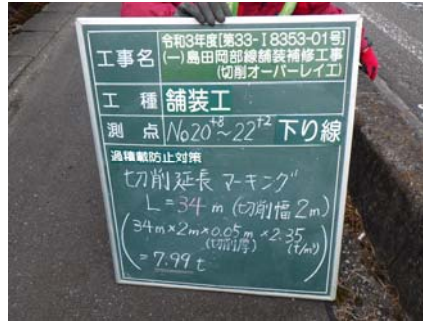 工事名
令和3年度[第33-I8353-01号]
(一)島田岡部線舗装補修工事
(切削オーバーレイ工)
工種 舗装工
測点 No20+8~22+2 下り線
過積載防止対策
切削延長 マーキング
L=34m (切削幅2m)
(34m×2m×0.05m×2.35
(切削厚) (t/m³)
=7.99t)